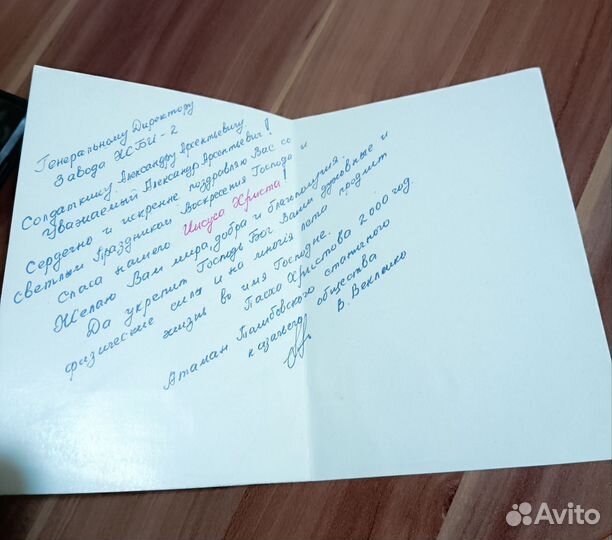 Генеральному Директору
Завода ЖСБИ-2
Солдаткину Александру Арсентьевичу
Уважаемый Александр Арсентьевич!
Сердечно и искренне поздравляю Вас со
светлым Праздником Воскресения Господа и
Спаса нашего Иисуса Христа!
Желаю Вам мира, добра и благополучия.
Да укрепит Господь Бог Ваши духовные и
физические силы и на многия лета продлит
жизнь во имя Господне.
Пасха Христова 2000 год
Атаман станичного
казачего общества
В. Векленко
Avito